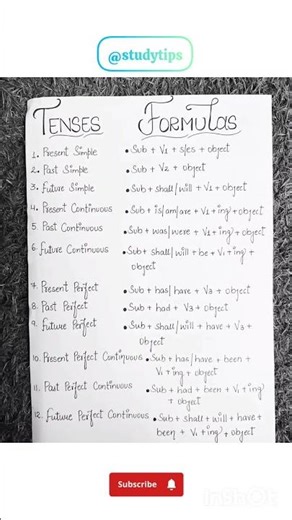 @studytips
TENSES FORMULAS
1. Present Simple • Sub + V1 + s/es + object
2. Past Simple • Sub + V2 + object
3. Future Simple • Sub + shall/will + V1 + object
4. Present Continuous • Sub + is/am/are + V1 + ing + object
5. Past Continuous • Sub + was/were + V1 + ing + object
6. Future Continuous • Sub + shall/will + be + V1 + ing +
object
7. Present Perfect • Sub + has/have + V3 + object
8. Past Perfect • Sub + had + V3 + object
9. Future Perfect • Sub + shall/will + have + V3 +
object
10. Present Perfect Continuous • Sub + has/have + been +
V1 + ing + object
11. Past Perfect Continuous • Sub + had + been + V1 + ing
+ object
12. Future Perfect Continuous • Sub + shall + will + have +
been + V1 + ing + object
Subscribe
InShOt